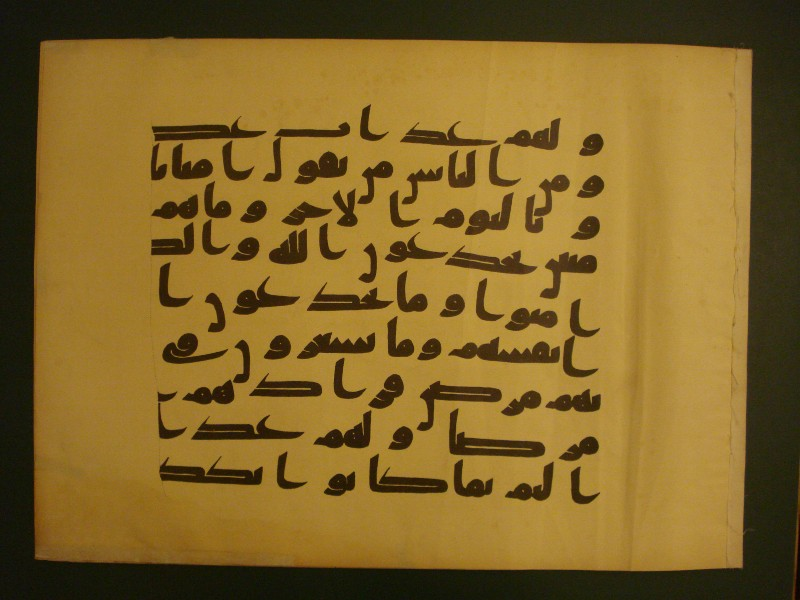 و لهم عذاب عظ
و من الناس من يقول امنا
و باليوم الاخر و ما هم
منين يخدعون الله و الذ
امنوا و ما يخدعون ا
انفسهم و ما يشعرون في
بهم مرض فزادهم
مرضا و لهم عذا
اليم بما كانوا يكذ